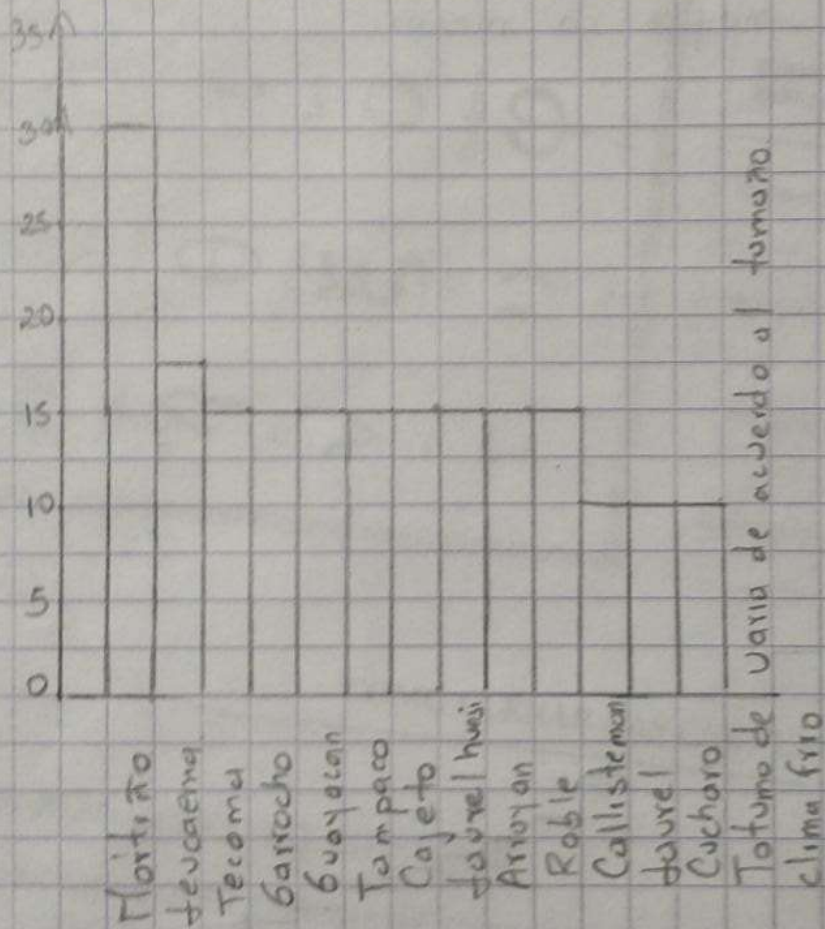 35
30
25
20
15
10
5
0
Mortiño
Leucaena
Tecoma
Garrocho
Guayacan
Tampaco
Cajeto
Laurel huesi
Arrayan
Roble
Callistemon
Laurel
Cucharo
Totumo de
clima frio
Varia de acuerdo al tamaño.